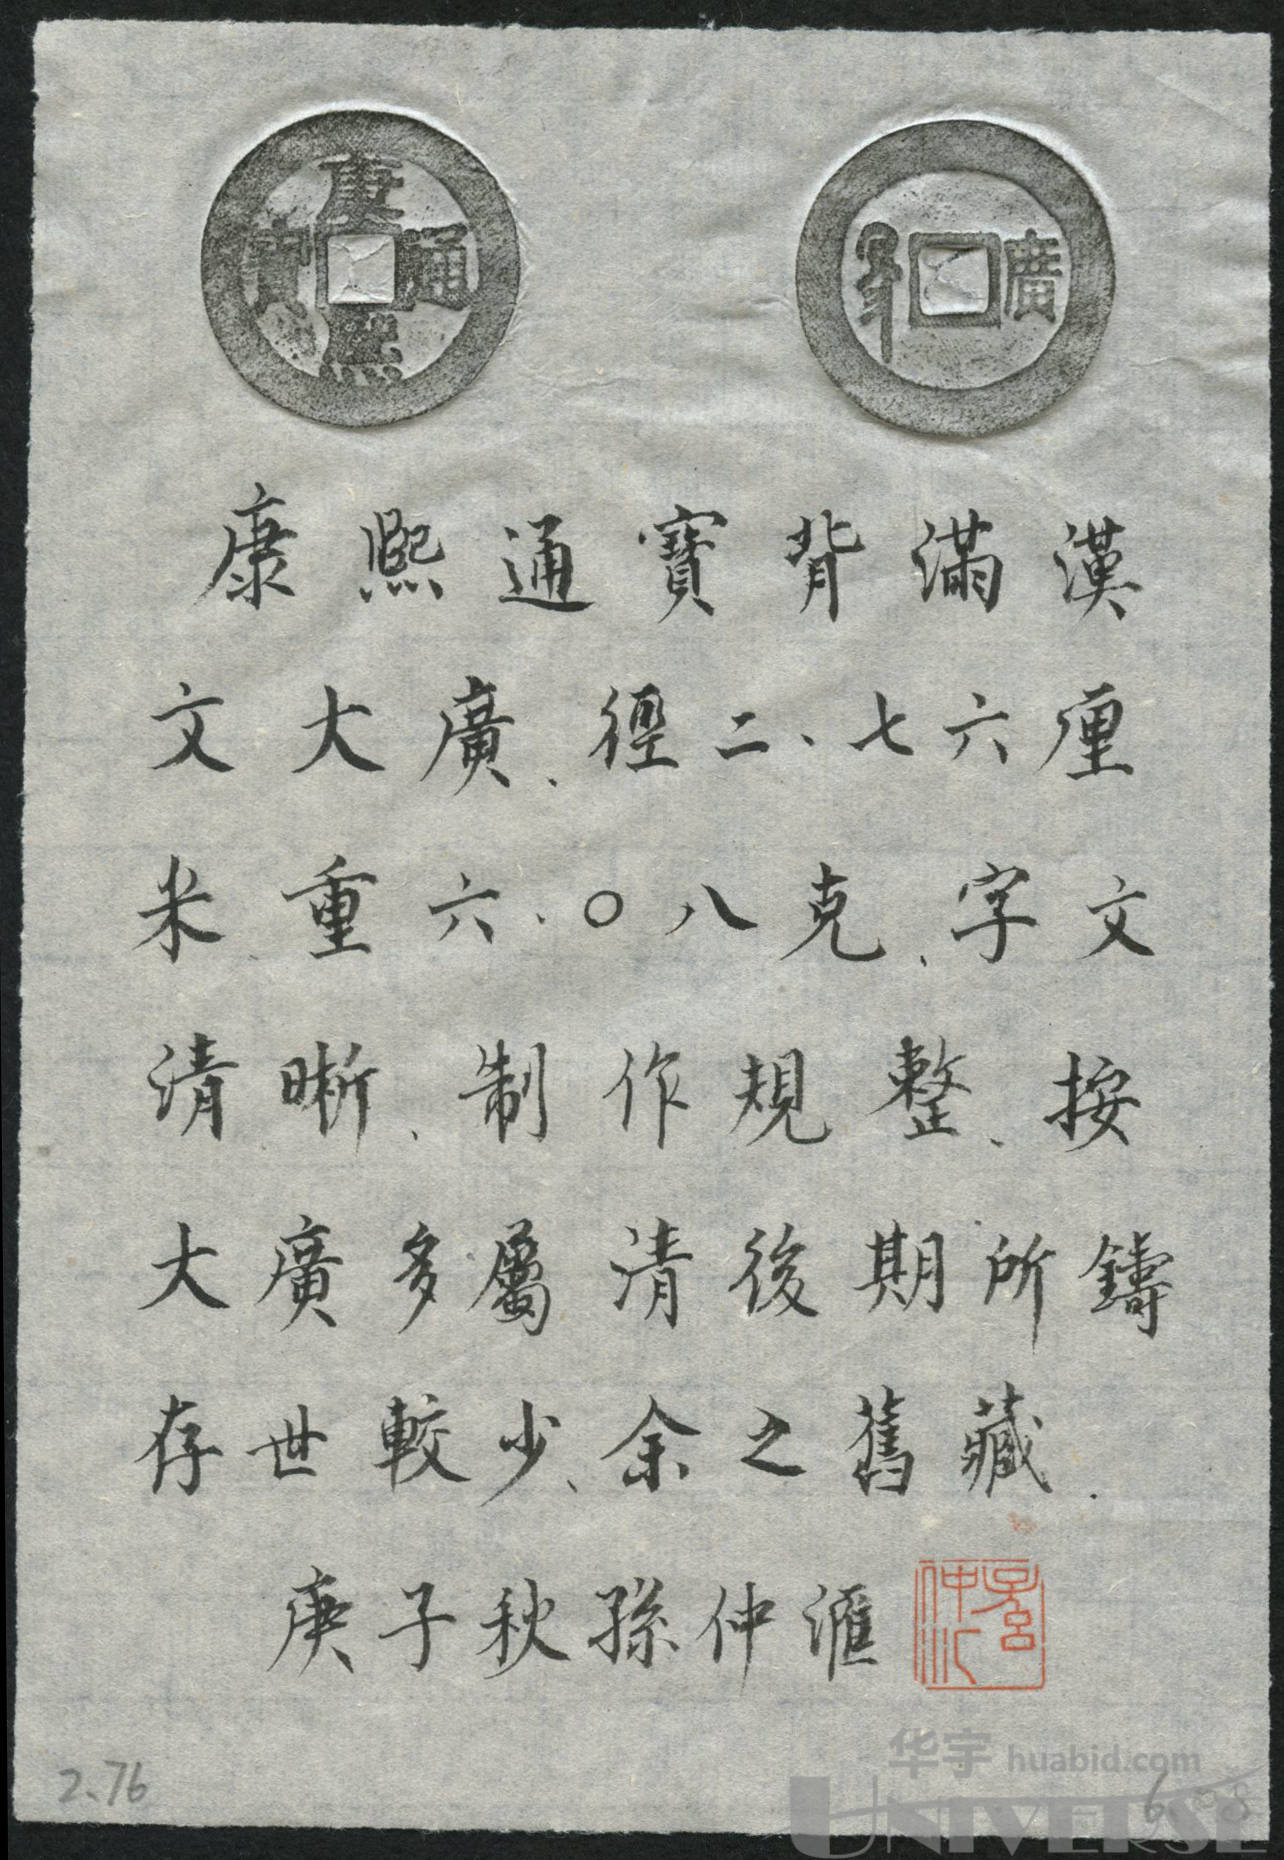 康熙通寶
廣
康熙通寶背滿漢
文大廣、徑二、七六厘
米重六、〇八克、字文
清晰、制作規整、按
大廣多屬清後期所鑄
存世較少、余之舊藏.
庚子秋孫仲滙
仲汇
2.76
6.08
华宇 huabid.com
UNIVERSE